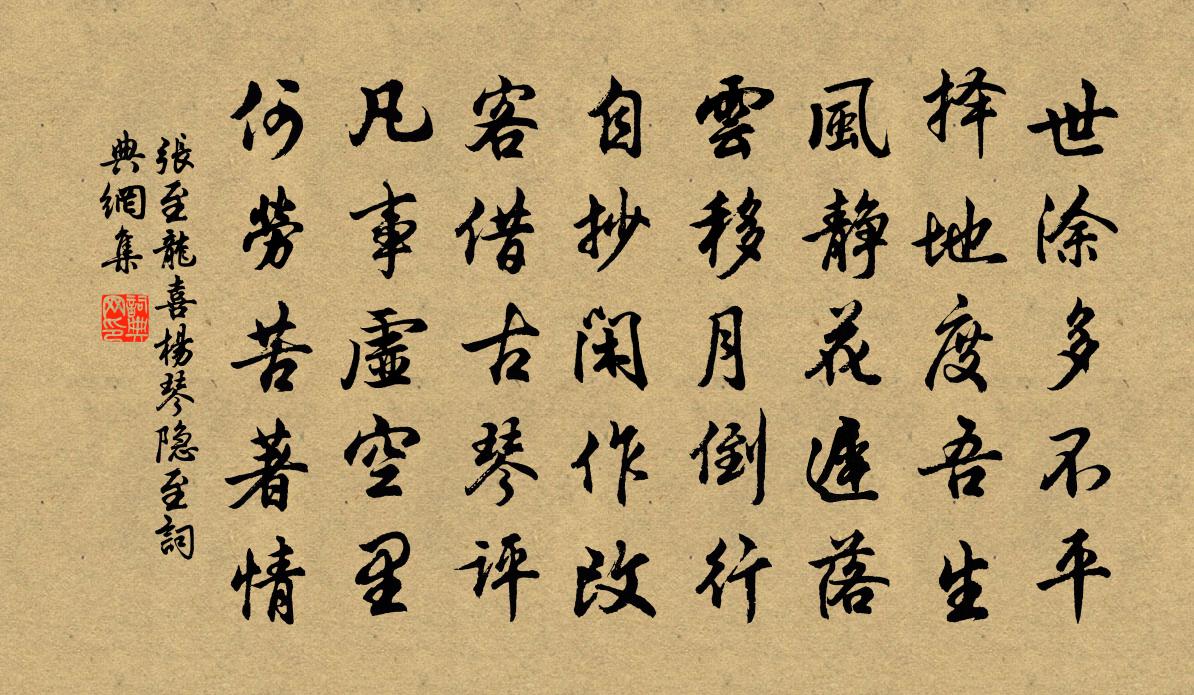 世涂多不平
择地度吾生
風静花遲落
雲移月倒行
自抄閑作改
客借古琴評
凡事虛空里
何勞苦著情
張至龍喜楊琴隐至詞
典網集
詞典
网印